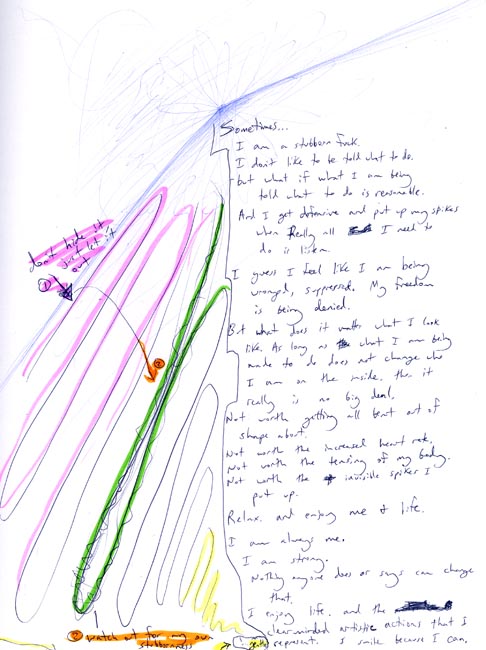 Sometimes...
I am a stubborn fuck.
I don't like to be told what to do.
but what if what I am being
told what to do is reasonable.
And I get defensive and put up my spikes
when Really all I need to
do is listen.
I guess I feel like I am being
wronged, suppressed. My freedom
is being denied.
But what does it matter what I look
like. As long as what I am being
made to do does not change who
I am on the inside, then it
really is no big deal.
Not worth getting all bent out of
shape about.
Not worth the increased heart rate.
Not worth the tensing of my body.
Not worth the invisible spikes I
put up.
Relax. and enjoy me & life.
I am always me.
I am strong.
Nothing anyone does or says can change
that.
I enjoy life. and the
clearminded artistic actions that I
represent. I smile because I can.
don't hide it
just let it
out
①
②
② patch of for my own
stubborness